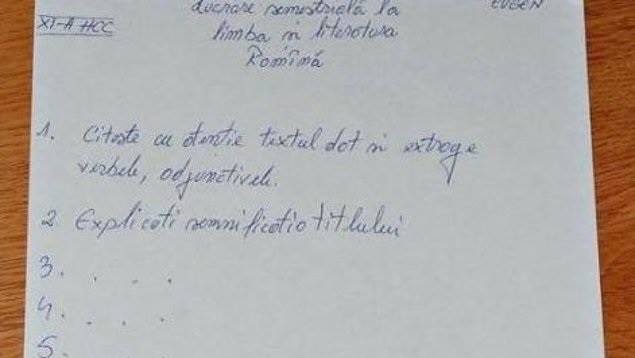 EUGEN
XI-A HCC
Lucrare semestrială la
limba si literatura
Romînă
1. Citeste cu atentie textul dat si extrage
verbele, adjunctivele.
2. Explicati semnificatia titlului
3. . . . .
4. . . . .
5.